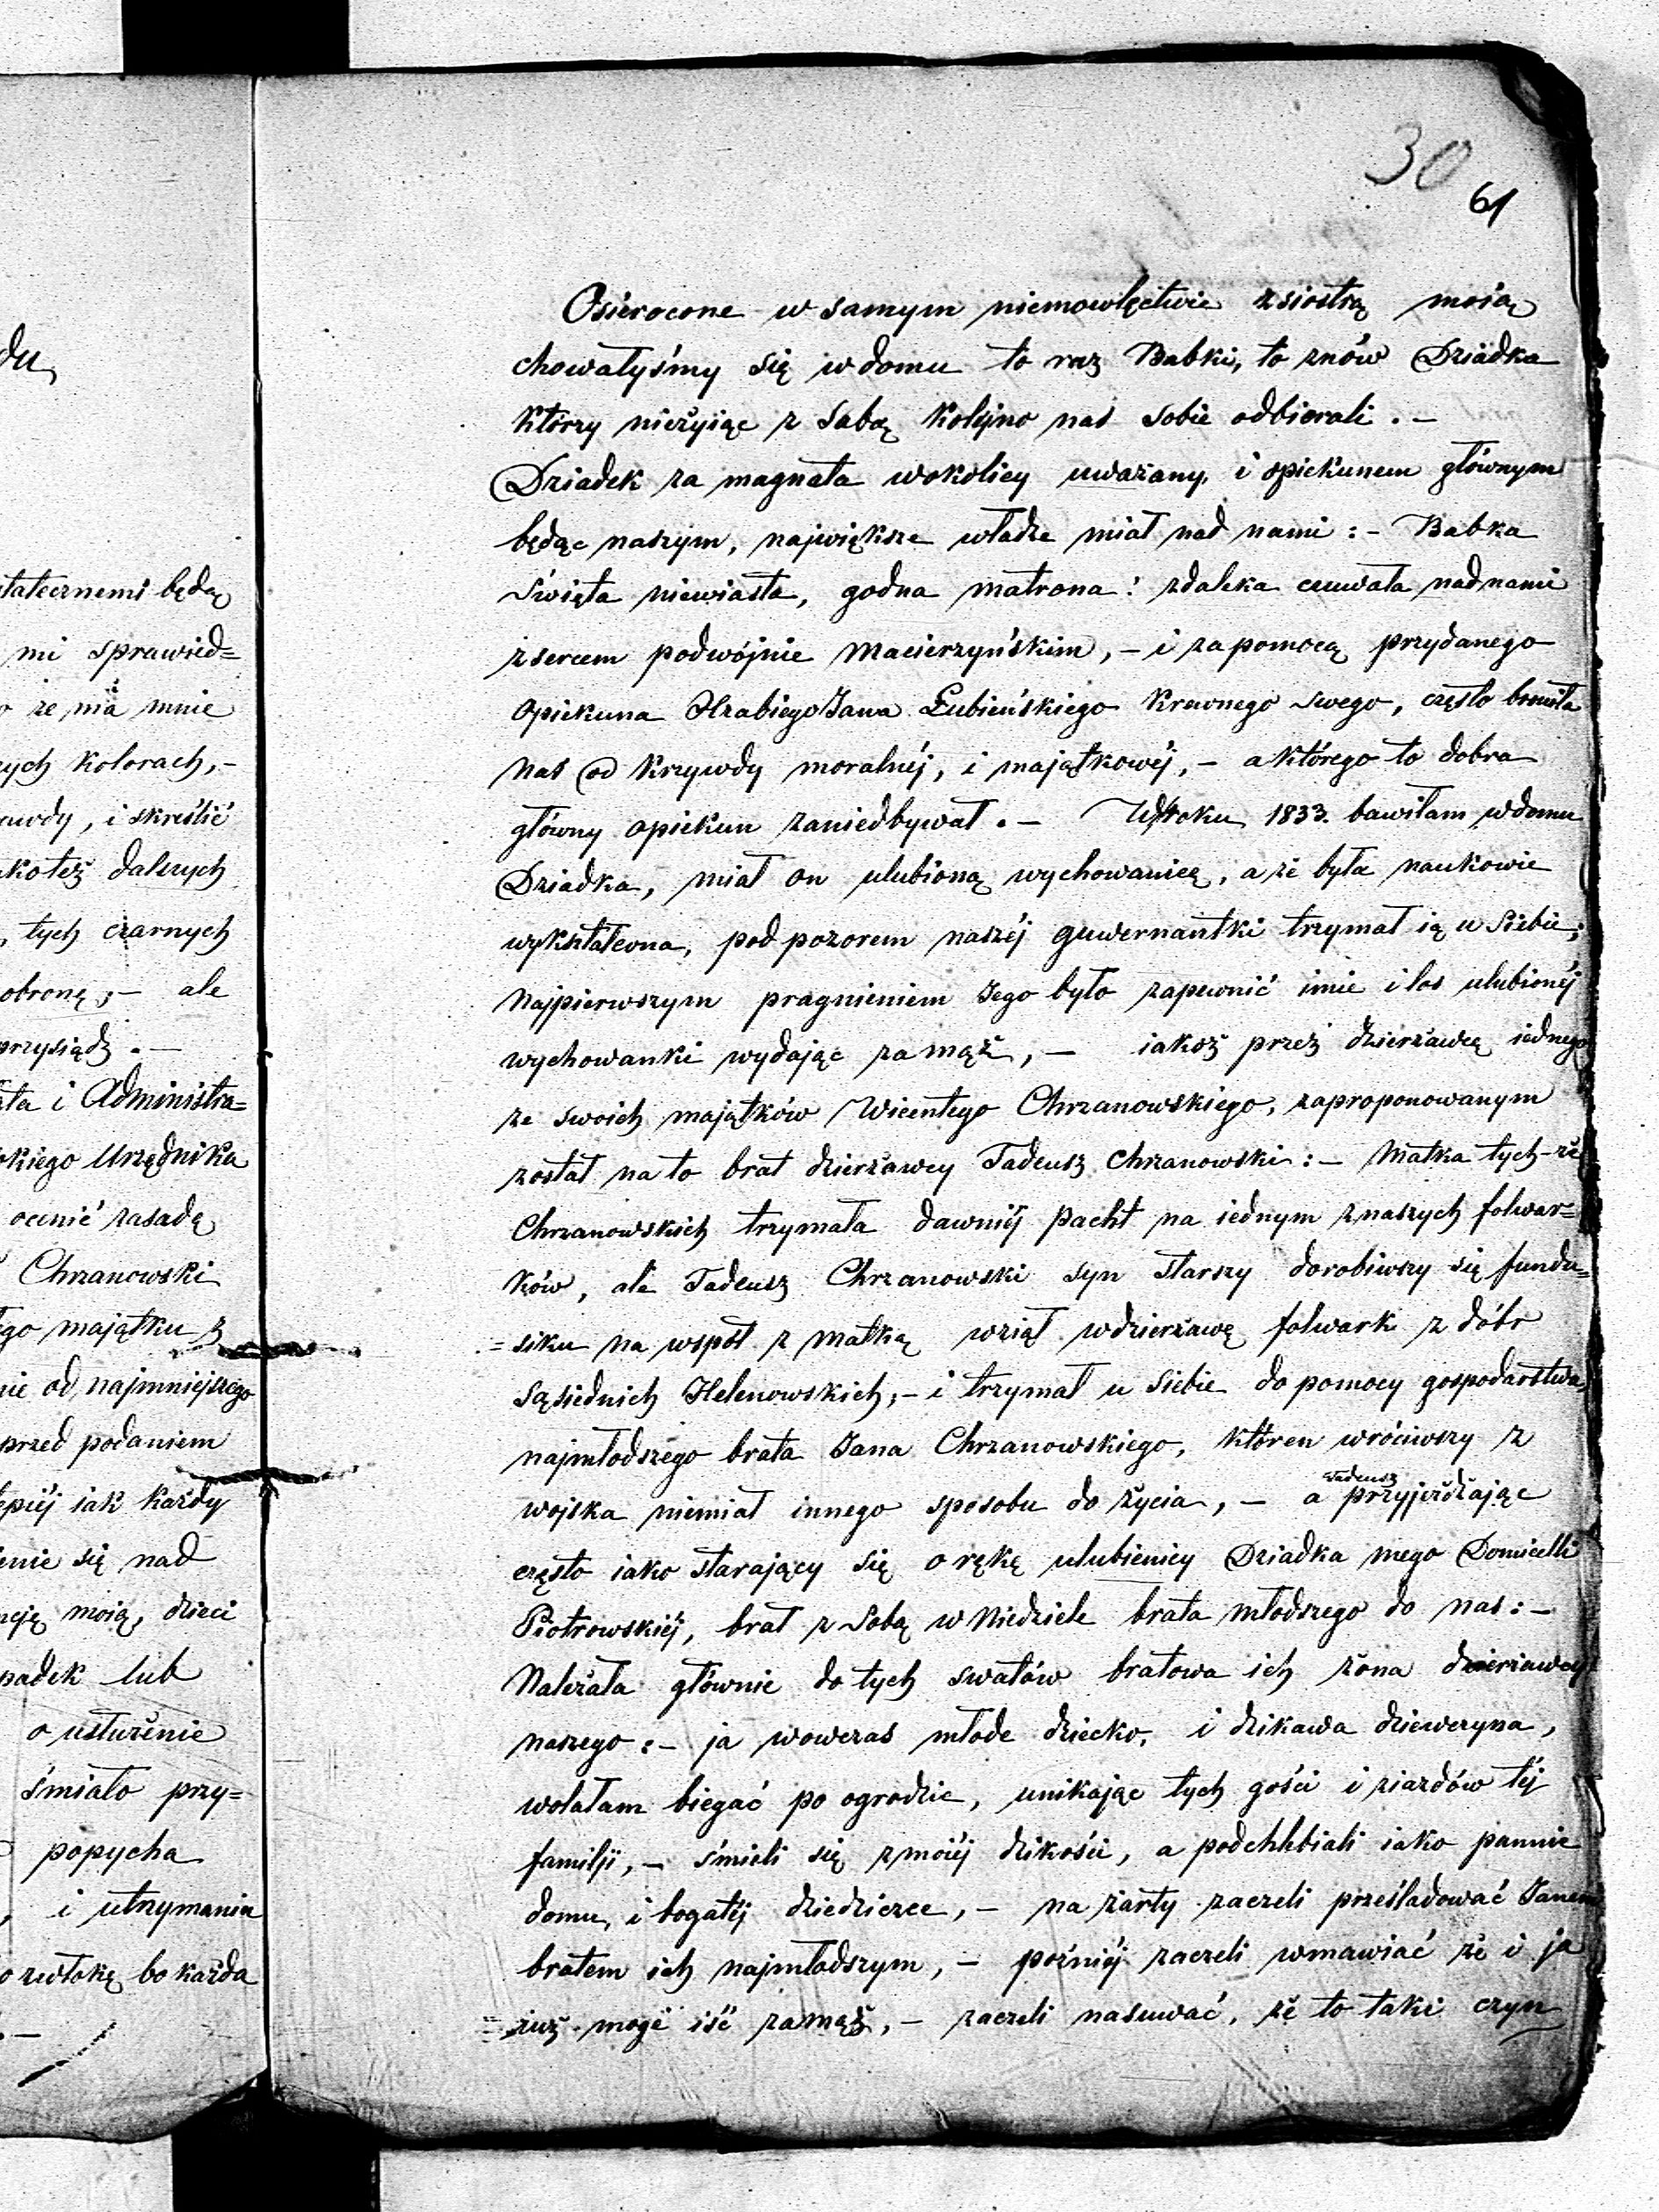 du
tatecznemi będą
mi sprawied=
że na mnie
ych kolorach,-
awdy, i skreślić
akoteż dalszych
, tych czarnych
obronę,- ale
przysiądz.-
i Administra=
Urzędnika
ocenić zasadę
Chrzanowski
go majątku z
nie od najmniejszego
przed podaniem
lepiéj iak każdy
enie się nad
moią, dzieci
padek lub
o usłużenie
śmiało przy=
popycha
, i utrzymania
zwłokę bo każda
30
61
Osierocone w samym niemowlęctwie z siostrą moią
chowałyśmy się w domu to raz Babki, to znów Dziadka
którzy nieżyiąc z sobą koleyno nas sobie odbierali.-
Dziadek za magnata wokolicy uważany, i opiekunem głównym
będąc naszym, największe władze miał nad nami:- Babka
święta niewiasta, godna matrona! zdaleka czuwała nad nami
z sercem podwójnie Macierzyńskim,- i za pomocą przydanego
opiekuna Hrabiego Jana Łubieńskiego krewnego swego, często broniła
nas od krzywdy moralnéj, i majątkowéj,- a którego to dobra
główny opiekun zaniedbywał.- W roku 1833. bawiłam w domu
Dziadka, miał on ulubioną wychowanicę, a że była naukowie
wykształcona, pod pozorem naszéj guwernantki trzymał ią u siebie;
Najpierwszym pragnieniem Jego było zapewnić imie i los ulubionéj
wychowanki wydając za mąż,- iakoż przez dzierżawcą iednego
ze swoich majątków Wicentego Chrzanowskiego, zaproponowanym
został na to brat dzierżawcy Tadeusz Chrzanowski:- Matka tych-że
Chrzanowskich trzymała dawniéj pacht na iednym z naszych folwar=
ków, ale Tadeusz Chrzanowski syn starszy dorobiwszy się fundu=
=siku na współ z matką wziął w dzierżawę folwark z dóbr
sąsiednich Helenowskich,- i trzymał u siebie do pomocy gospodarstwa,
najmłodszego brata Jana Chrzanowskiego, któren wróciwszy z
wojska niemiał innego sposobu do życia,- a Tadeusz przyjeżdżając
często iako starający się o rękę ulubienicy Dziadka mego Domicelli
Piotrowskiéj, brał z sobą w Niedziele brata młodszego do nas:-
Należała głównie do tych swatów bratowa ich żona dzierżawcy
naszego:- ja wowczas młode dziecko, i dzikawa dziewczyna,
wolałam biegać po ogrodzie, unikając tych gości i ziazdów téj
familji,- śmieli się z moiéj dzikości, a podchlebiali iako pannie
domu, i bogatéj dziedziczce,- na żarty zaczeli prześladować Janem
bratem ich najmłodszym,- poźniéj zaczeli wmawiać że i ja
iuż mogę iść zamąż,- zaczeli nasuwać, że to taki czyn